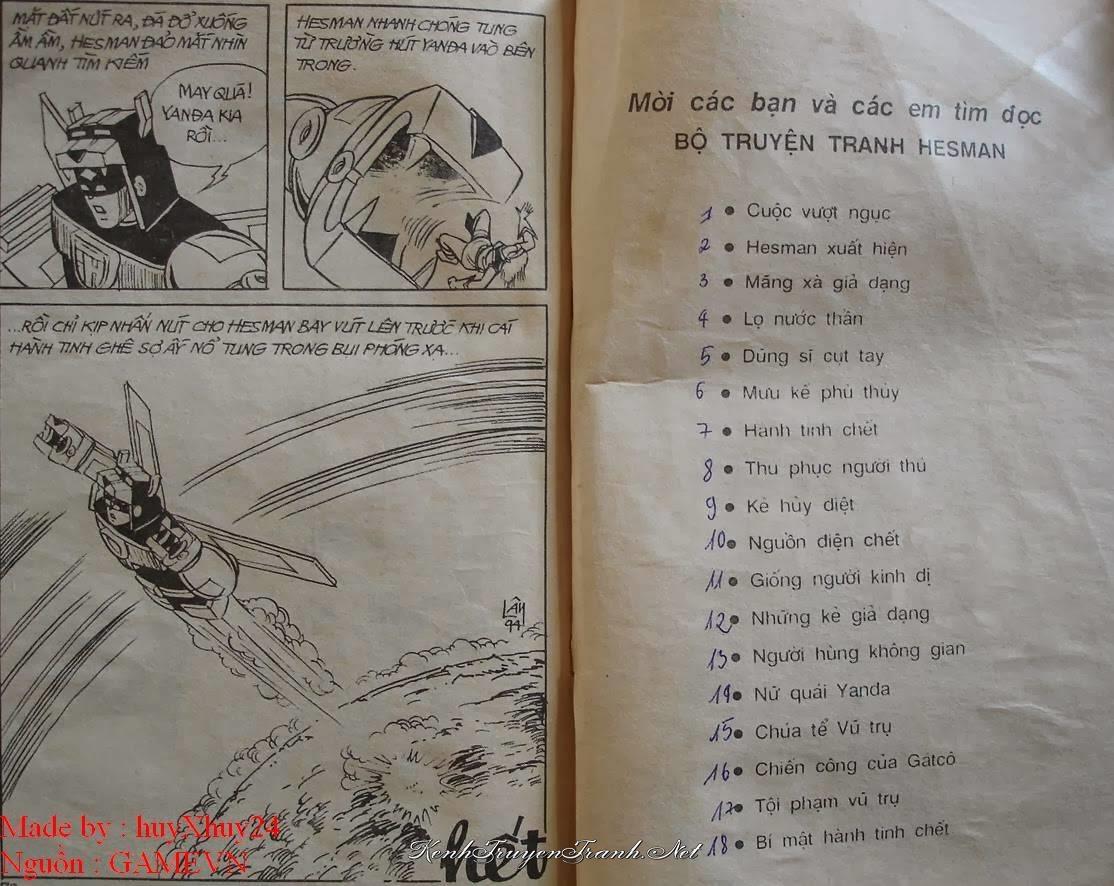 MẶT ĐẤT NỨT RA, ĐÁ ĐỔ XUỐNG
ẦM ẦM, HESMAN ĐẢO MẮT NHÌN
QUANH TÌM KIẾM
MAY QUÁ!
YANĐA KIA
RỒI...
HESMAN NHANH CHÓNG TUNG
TỪ TRƯỜNG HÚT YANĐA VAÒ BÊN
TRONG.
...RỒI CHỈ KỊP NHẤN NÚT CHO HESMAN BAY VÚT LÊN TRƯỚC KHI CÁI
HÀNH TINH GHÊ SỢ ẤY NỔ TUNG TRONG BỤI PHÓNG XẠ...
LÂN
94
hết
Made by : huyXhuy24
Nguồn : GAMEVN
KenhTruyenTranh.Net
Mời các bạn và các em tìm đọc
BỘ TRUYỆN TRANH HESMAN
1 • Cuộc vượt ngục
2 • Hesman xuất hiện
3 • Mãng xà giả dạng
4 • Lọ nước thần
5 • Dũng sĩ cụt tay
6 • Mưu kế phù thủy
7 • Hành tinh chết
8 • Thu phục người thú
9 • Kẻ hủy diệt
10 • Nguồn điện chết
11 • Giống người kinh dị
12 • Những kẻ giả dạng
13 • Người hùng không gian
14 • Nữ quái Yanda
15 • Chúa tể Vũ trụ
16 • Chiến công của Gatcô
17 • Tội phạm vũ trụ
18 • Bí mật hành tinh chết